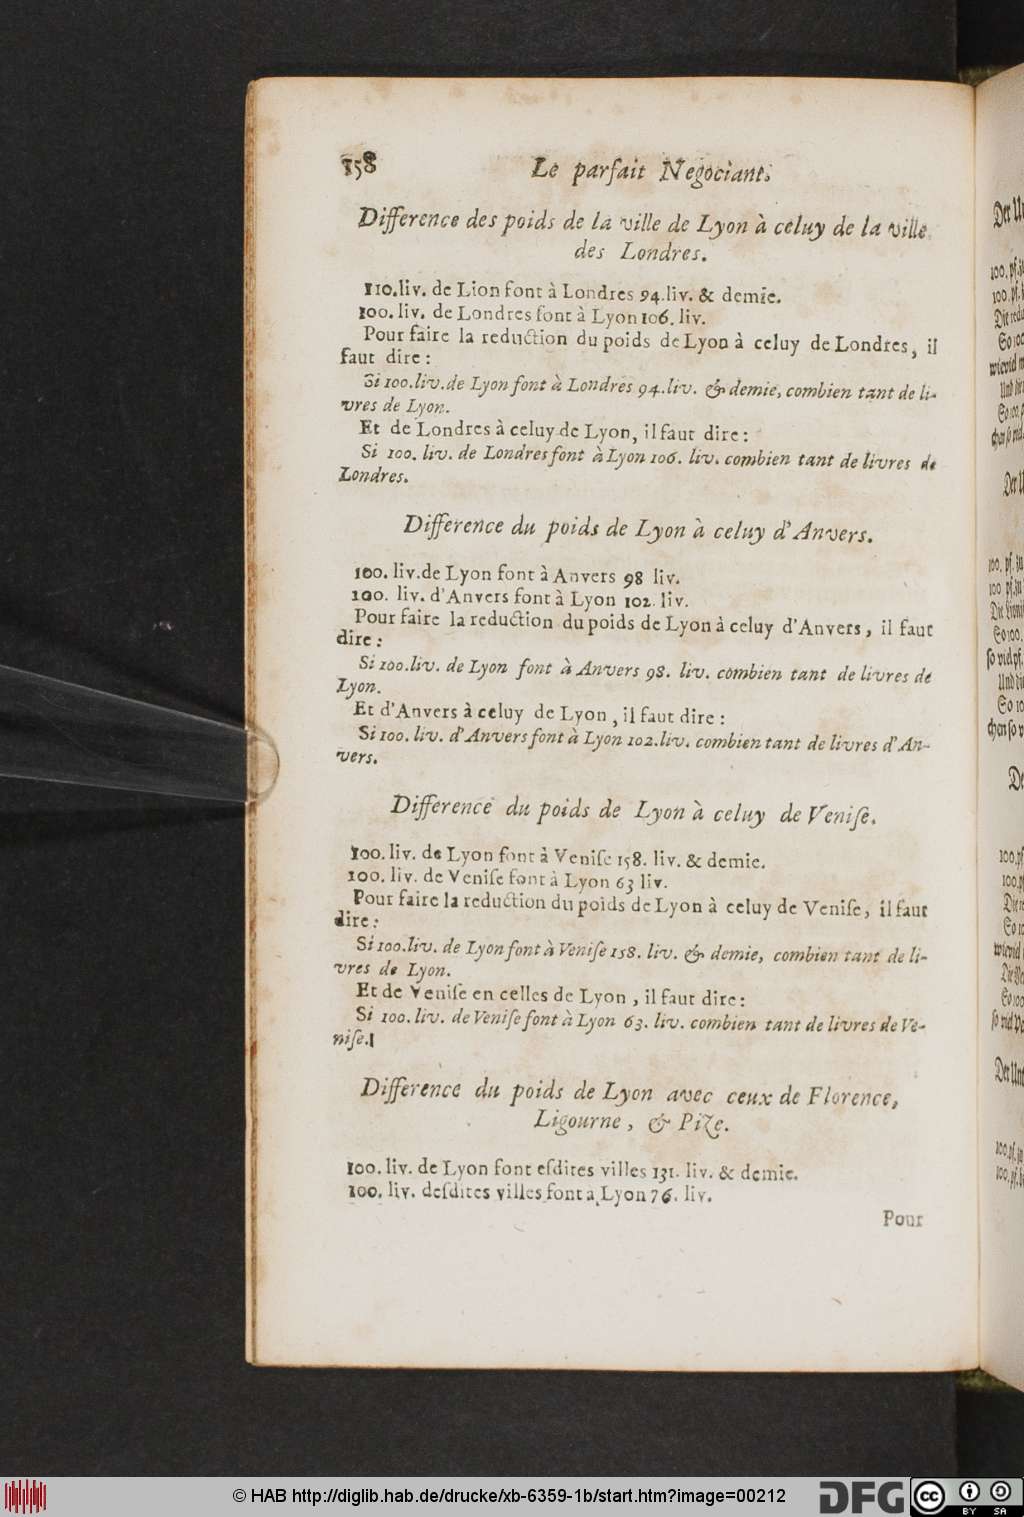 158 Le parfait Negociant.
Difference des poids de la ville de Lyon à celuy de la ville
des Londres.
110.liv. de Lion font à Londres 94.liv. & demie.
100. liv. de Londres font à Lyon 106. liv.
Pour faire la reduction du poids de Lyon à celuy de Londres, il
faut dire :
Si 100.liv.de Lyon font à Londres 94.liv. & demie, combien tant de li-
vres de Lyon.
Et de Londres à celuy de Lyon, il faut dire :
Si 100. liv. de Londres font à Lyon 106. liv. combien tant de livres de
Londres.
Difference du poids de Lyon à celuy d'Anvers.
100. liv.de Lyon font à Anvers 98 liv.
100. liv. d'Anvers font à Lyon 102. liv.
Pour faire la reduction du poids de Lyon à celuy d'Anvers, il faut
dire :
Si 100.liv. de Lyon font à Anvers 98. liv. combien tant de livres de
Lyon.
Et d'Anvers à celuy de Lyon , il faut dire :
Si 100. liv. d'Anvers font à Lyon 102.liv. combien tant de livres d'An-
vers.
Difference du poids de Lyon à celuy de Veniſe.
100. liv. de Lyon font à Veniſe 158. liv. & demie.
100. liv. de Veniſe font à Lyon 63 liv.
Pour faire la reduction du poids de Lyon à celuy de Veniſe, il faut
dire :
Si 100.liv. de Lyon font à Veniſe 158. liv. & demie, combien tant de li-
vres de Lyon.
Et de Veniſe en celles de Lyon , il faut dire :
Si 100. liv. de Veniſe font à Lyon 63. liv. combien tant de livres de Ve-
niſe.
Difference du poids de Lyon avec ceux de Florence,
Ligourne, & Pize.
100. liv. de Lyon font eſdites villes 131. liv. & demie.
100. liv. deſdites villes font a Lyon 76. liv.
Pour
© HAB http://diglib.hab.de/drucke/xb-6359-1b/start.htm?image=00212
DFG
CC BY SA